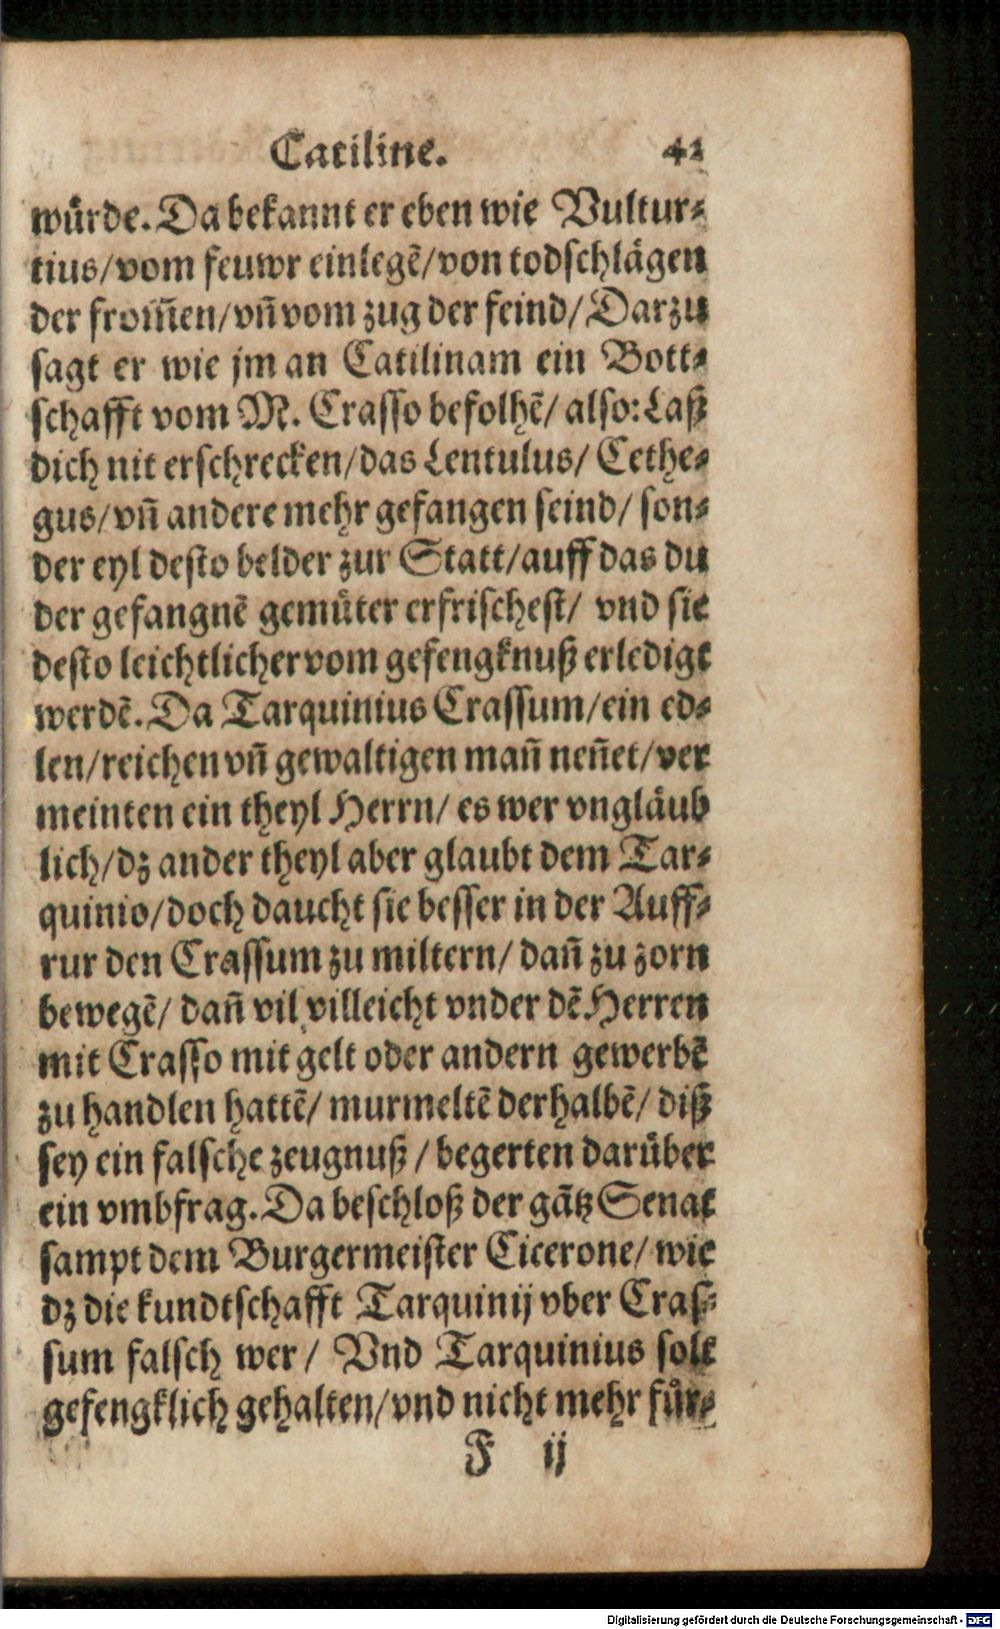 Catiline. 42
wuͤrde. Da bekannt er eben wie Vultur⸗
tius/vom feuwr einlegẽ/von todschlaͤgen
der from̃en/vñ vom zug der feind/Darzu
sagt er wie jm an Catilinam ein Bott⸗
schafft vom M. Crasso befolhẽ/ also: Laß
dich nit erschrecken/das Lentulus/ Cethe⸗
gus/vñ andere mehr gefangen seind/ son⸗
der eyl desto belder zur Statt/auff das du
der gefangnẽ gemuͤter erfrischest/ vnd sie
desto leichtlicher vom gefengknuß erledigt
werdẽ. Da Tarquinius Crassum/ein ed⸗
len/reichen vñ gewaltigen mañ neñet/ver
meinten ein theyl Herrn/ es wer vnglaͤub
lich/dz ander theyl aber glaubt dem Tar⸗
quinio/doch daucht sie besser in der Auff⸗
rur den Crassum zu miltern/ dañ zu zorn
bewegẽ/ dañ vil villeicht vnder dẽ Herren
mit Crasso mit gelt oder andern gewerbẽ
zu handlen hattẽ/ murmeltẽ derhalbẽ/ diß
sey ein falsche zeugnuß / begerten daruͤber
ein vmbfrag. Da beschloß der gãtz Senat
sampt dem Burgermeister Cicerone/ wie
dz die kundtschafft Tarquinij vber Cras⸗
sum falsch wer/ Vnd Tarquinius solt
gefengklich gehalten/vnd nicht mehr fuͤr⸗
F ij
Digitalisierung gefördert durch die Deutsche Forschungsgemeinschaft - DFG